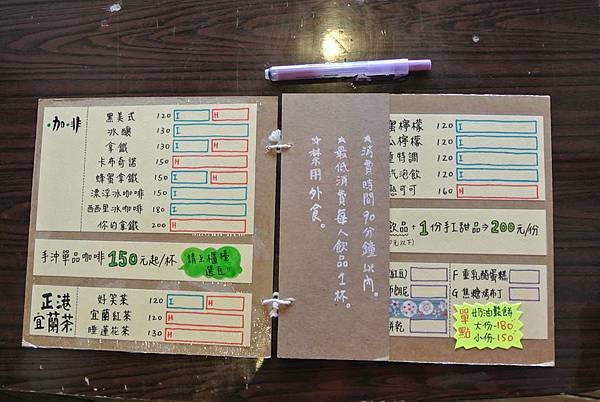 咖·啡
黑美式 120 I H
冰釀 130 I
拿鐵 130 I H
卡布奇諾 150 H
蜂蜜拿鐵 150 I H
漂浮冰咖啡 150 I
西西里冰咖啡 180 I
你的拿鐵 200 H
手沖單品咖啡 150元起/杯
請至櫃檯
選豆!!
正港
宜蘭茶
好笑茶 120 I H
宜蘭紅茶 120 H
睡蓮花茶 130 H
★消費時間90分鐘以內。
★最低消費每人飲品1杯。
★禁用外食。
蜜檸檬 120 I
檸檬 120 I
特調 120 I
汽泡飲 120 I
可可 160 H
飲品+1份手工甜品⇒200元/份
元以下)
紅豆)
F 重乳酪蛋糕
G 焦糖烤布丁
單點
奶油鬆餅
大份-180
小份-150